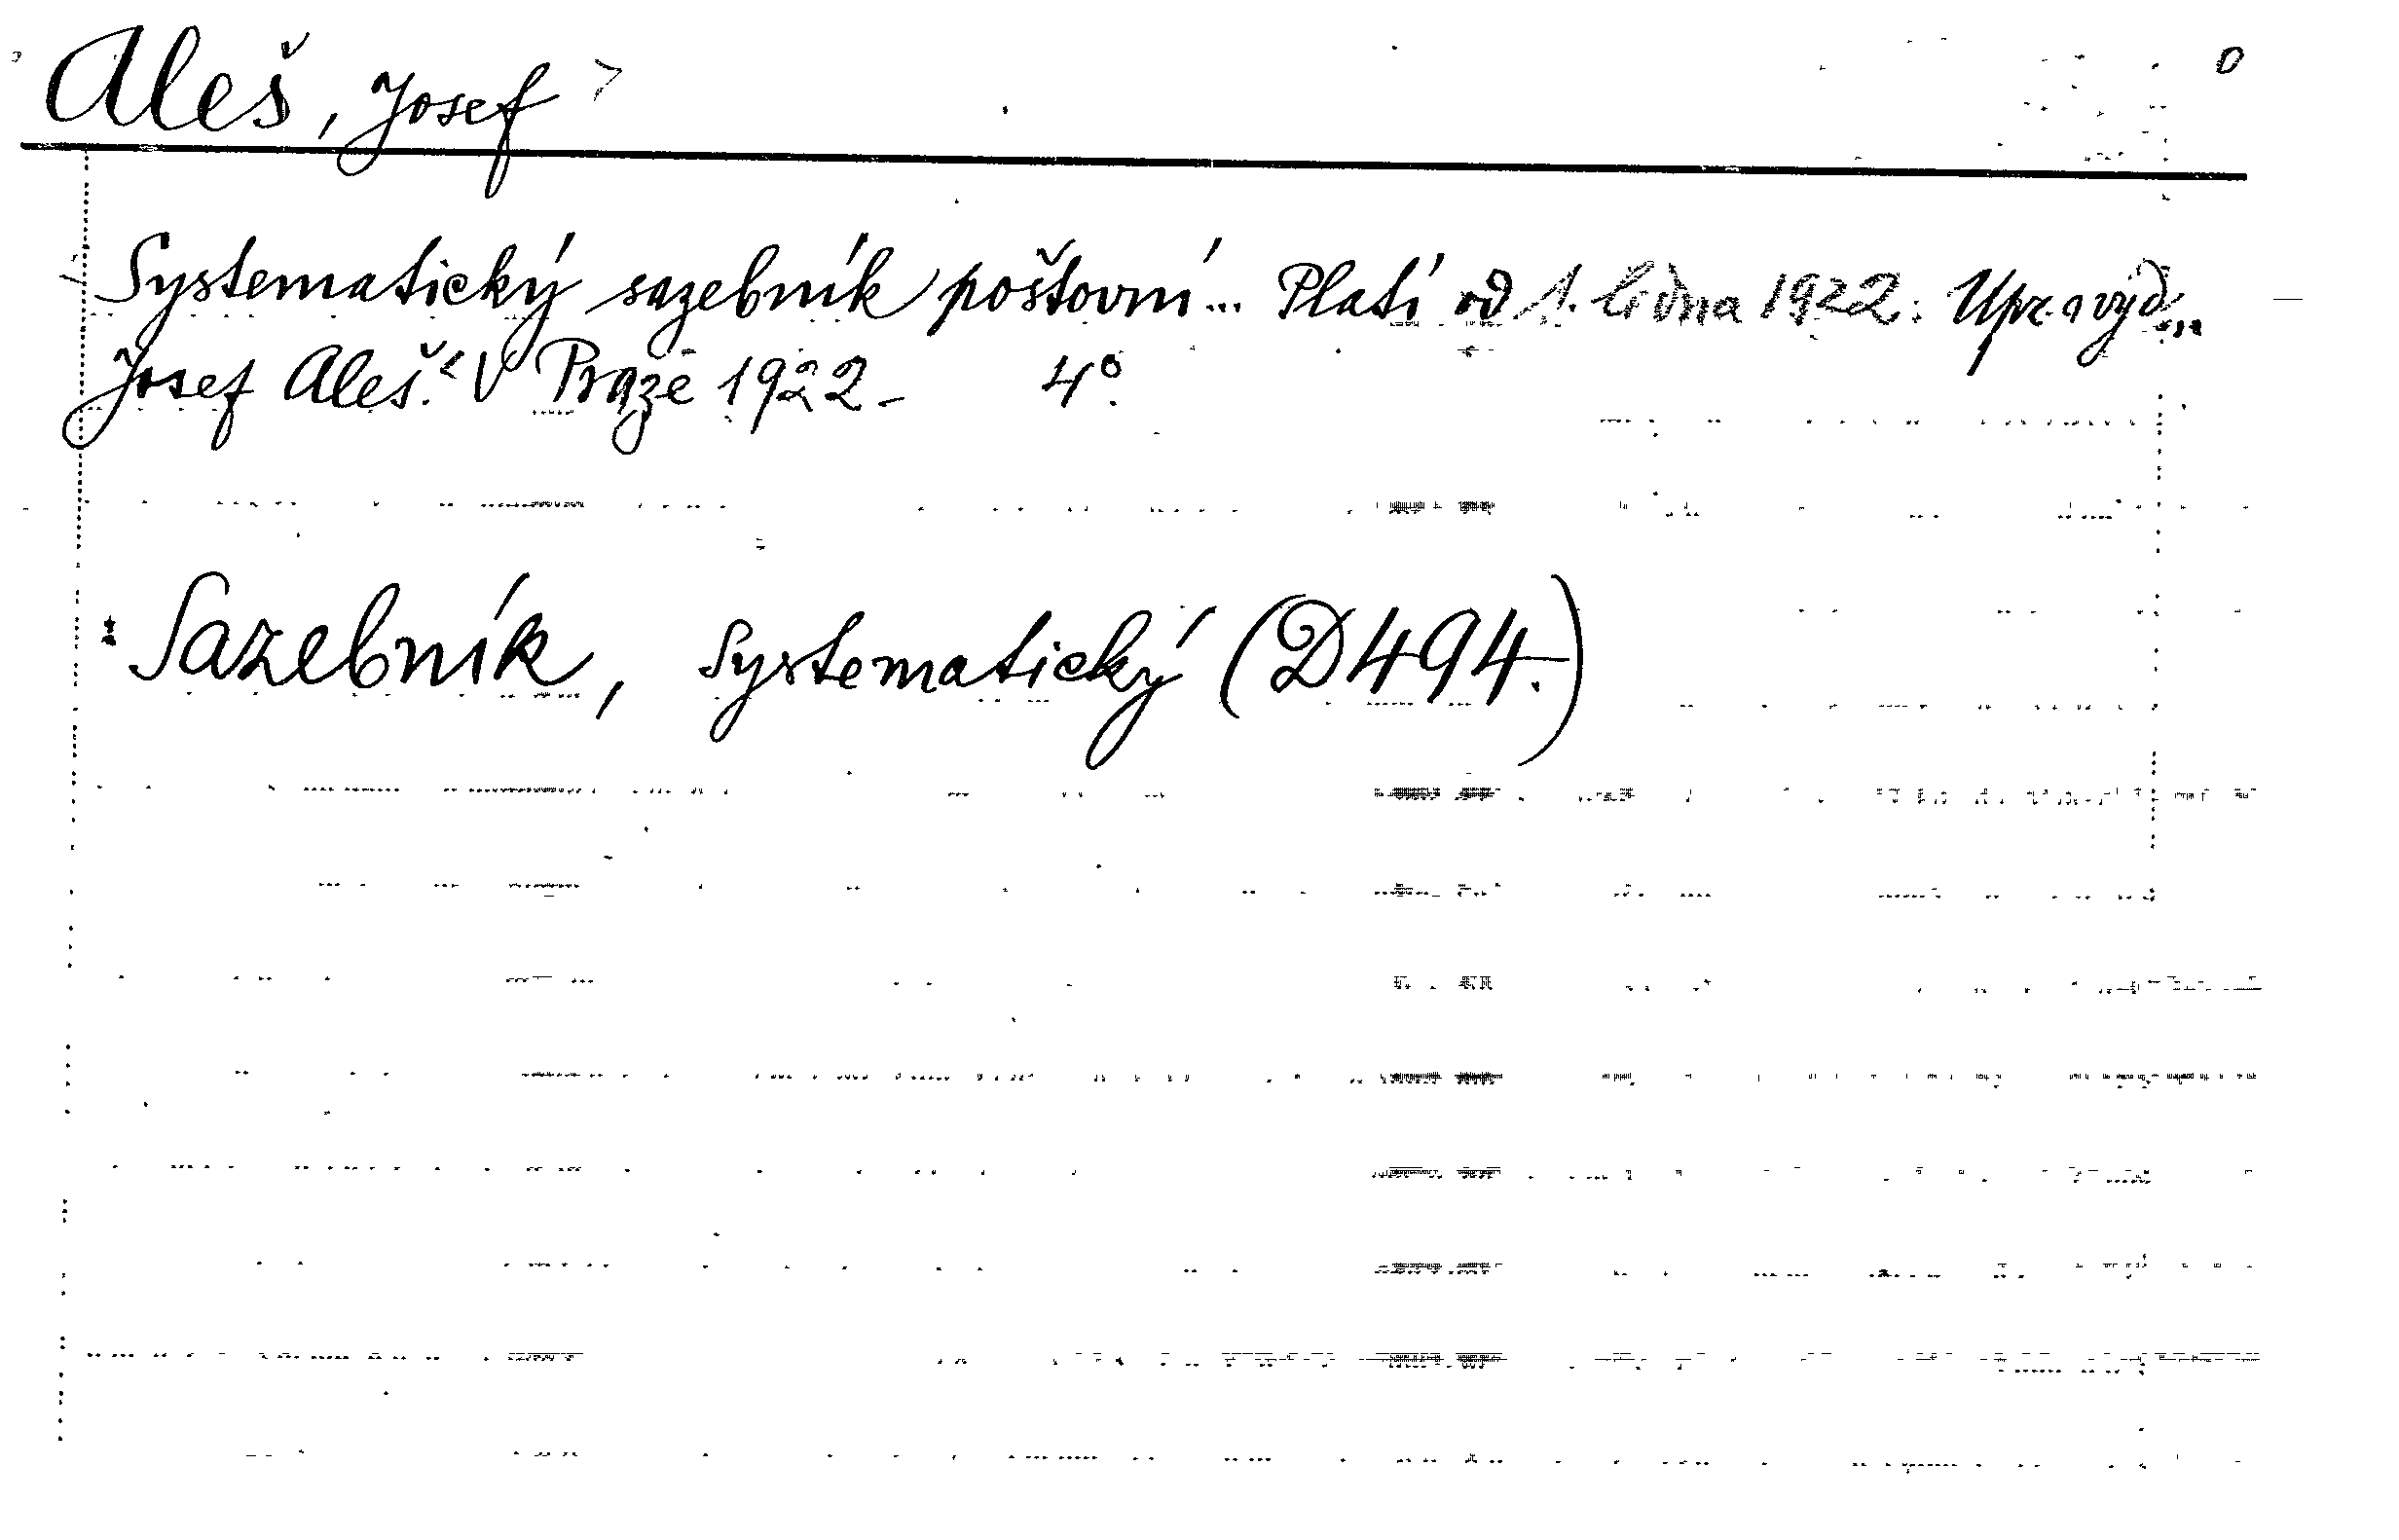 Aleš, Josef
Systematický sazebník poštovní... Platí od 1. ledna 1922. Upr. a vyd.
Josef Aleš. V Praze 1922 - 4°.
: Sazebník, Systematický (D 494.)